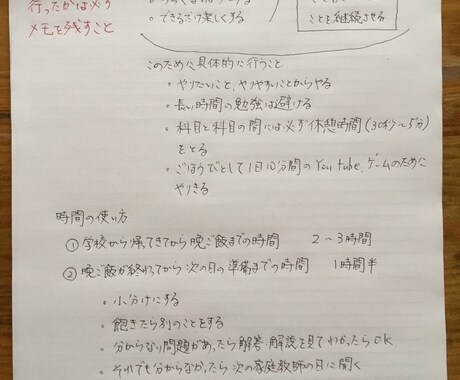 行ったかは必ず
メモを残すこと
・できるだけ楽しくする
ことを継続させる
このために具体的に行うこと
・やりたいこと、やりやすいことからやる
・長い時間の勉強は避ける
・科目と科目の間には必ず休憩時間(30秒〜5分)
をとる
・ごほうびとして1日10分間のYou tube、ゲームのために
やりきる
時間の使い方
① 学校から帰ってきてから晩ご飯までの時間 2〜3時間
② 晩ご飯が終わってから次の日の準備までの時間 1時間半
・小分けにする
・飽きたら別のことをする
・分からない問題があったら解答・解説を見てわかったらOK
・それでも分からなかったら次の家庭教師の日に聞く